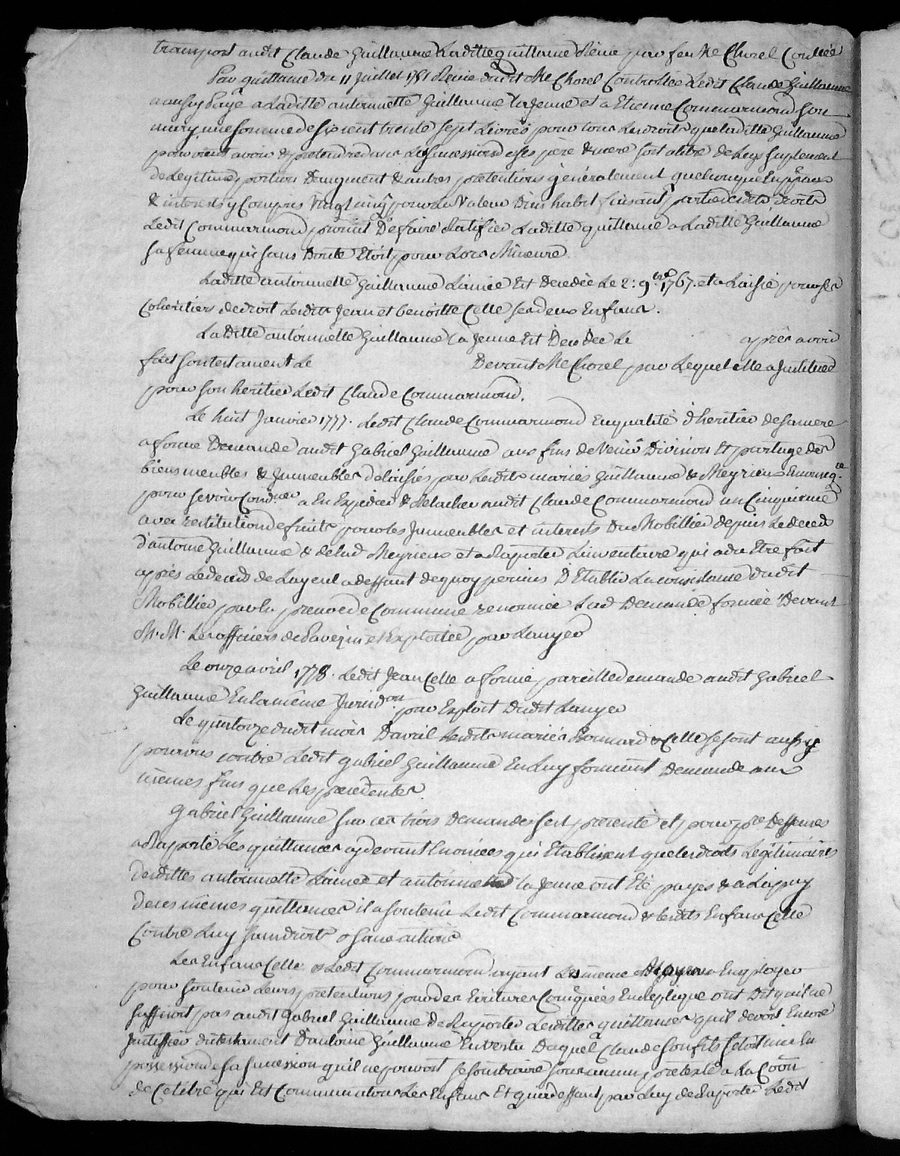 transport audit Claude Guillaume Laditte quittance Reçue par feu Me Chorel Controllée
Par quittance du 11 juillet 1751 Reçue dudit Me Chorel Controllée Ledit Claude Guillaume
a aussy payé a Laditte antoinette Guillaume la jeune et a Etienne Commarmond son
mary une somme de six cent trente sept Livres pour tous Les droits que laditte Guillaume
pouvoit avoir & pretendre dans La succession de ses pere & mere soit a titre de Legs suplement
de Legitime, portion D'augment & autres pretentions generalement quelconques En principal
& interets y Compris vingt cinq pour la valeur D'un habit faisant partie desdits droits
Ledit Commarmond promit De faire Ratifier Laditte quittance a Laditte Guillaume
sa femme qui sans Doute Etoit pour Lors Mineure.
Laditte antoinette Guillaume L'ainée Est Decedée Le 2: 9bre 1767. et a Laissé pour ses
Coheritiers de droit Lesdits Jean et benoitte Celle ses deux Enfans.
La Ditte antoinette Guillaume La Jeune Est Decedée Le après avoir
fait son testament Le Devant Me Chorel par Lequel elle a Institué
pour son heritier Ledit Claude Commarmond.
Le huit Janvier 1777. Ledit Claude Commarmond En qualité d'heritier de sa mere
a formé Demande audit Gabriel Guillaume aux fins de Venir Division Et partage des
biens meubles & Immeubles delaissés par lesdits mariés Guillaume & Meyrieux
pour se voir Condner a En Expedier & Relacher audit Claude Commarmond un Cinquieme
avec restitution de fruits pour les Immeubles et interets Du Mobillier depuis Le deced
d'antoine Guillaume & de lad. Meyrieux et a Raporter L'inventaire qui a du Etre fait
après Le deced de L'ayeul a deffaut de quoy permis D'Etablir La consistance dudit
Mobillier par la preuve de Commune renommée Lad. Demande formée Devant
M.M. Les officiers de Savigni et Exploitée par Lauyer
Le onze avril 1778. Ledit Jean Celle a formé pareille demande audit Gabriel
Guillaume En la même Juridon par Exploit Dudit Lauyer
Le quatorze dudit mois D'avril Lesdits mariés Bonnard & Celle se sont aussy
pourvus contre Ledit gabriel Guillaume En Luy formant Demande aux
mêmes fins que Les precedentes
Gabriel Guillaume sur ces trois Demandes s'est presenté et pour pres Deffenses
a Raporté Les quittances cy devant Enoncées qui Etablissent que les droits Legitimaires
desdittes antoinette L'ainée et antoinette la Jeune ont Eté payés & a L'apuy
de ces mêmes quittances il a soutenu Ledit Commarmond & Lesdits Enfans Celle
Contre Luy sans droit & sans action
Les Enfans Celle & Ledit Commarmond ayant Les même Moyens a Employer
pour soutenir Leurs pretentions par des Ecritures Communes En replique ont Dit qu'il ne
suffisoit pas audit Gabriel Guillaume de Raporter Lesdittes quittances qu'il devoit Encore
Justiffier du testament D'antoine Guillaume En vertu Duquel Claude son fils s'etoit mis En
possession de sa succession qu'il ne pouvoit se soustraire sous aucun pretexte a La Coon
de Ce titre qui Est Commun a tous Les Enfans Et que deffaut par Luy de Raporter Ledit